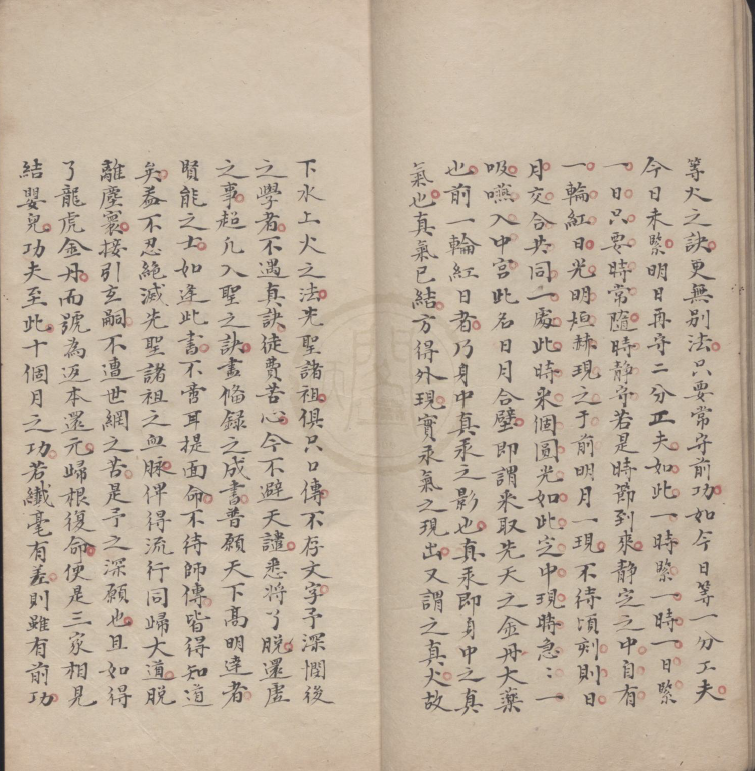 等火之訣更無别法只要常守前功如今日等一分工夫
今日未緊明日再守二分工夫如此一時緊一時一日緊
一日只要時常隨時静守若是時節到來静定之中自有
一輪紅日光明烜赫現之于前明月一現不待頃刻則日
月交合共同一處此時采個圓光如此定中現時急〻一
吸嚥入中宫此名日月合璧即謂采取先天之金丹大藥
也前一輪紅日者乃身中真汞之影也真汞即身中之真
氣也真氣已結方得外現實汞氣之現出又謂之真火故
下水上火之法先聖諸祖俱只口傳不存文字予深憫後
之學者不遇真訣徒費苦心今不避天譴悉將了脱還虚
之事超凡入聖之訣盡偹録之成書普願天下髙明達者
賢能之士如逢此書不啻耳提面命不待師傳皆得知道
矣葢不忍絶滅先聖諸祖之血脉俾得流行同歸大道脱
離塵寰接引玄嗣不遭世網之苦是予之深願也且如得
了龍虎金丹而號為返本還元歸根復命便是三家相見
結嬰兒功夫至此十個月之功若纖毫有差則雖有前功